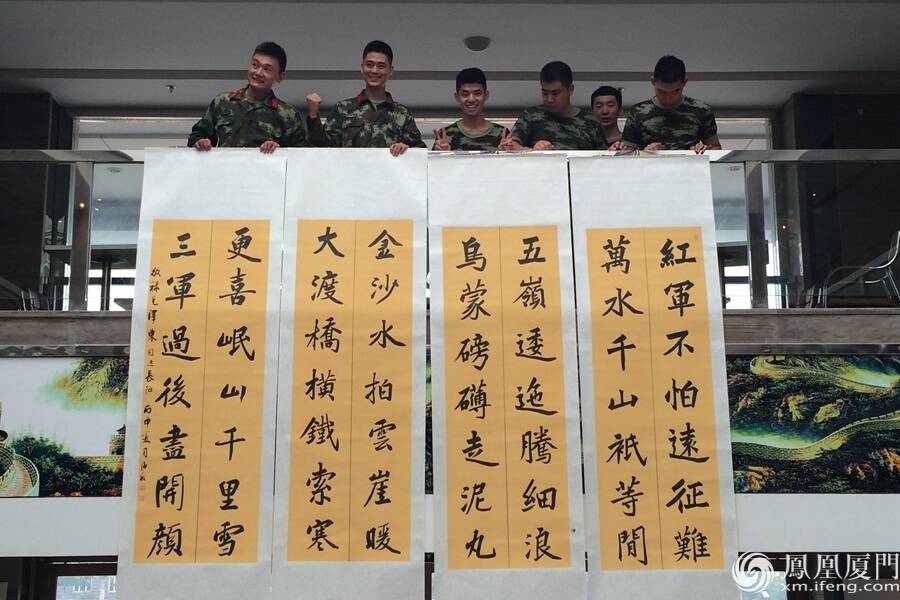 紅軍不怕遠征難
萬水千山衹等閒
五嶺逶迤騰細浪
烏蒙磅礴走泥丸
金沙水拍雲崖暖
大渡橋橫鐵索寒
更喜岷山千里雪
三軍過後盡開顏
敬録毛澤東同志長征 丙申
鳳凰厦門
xm.ifeng.com